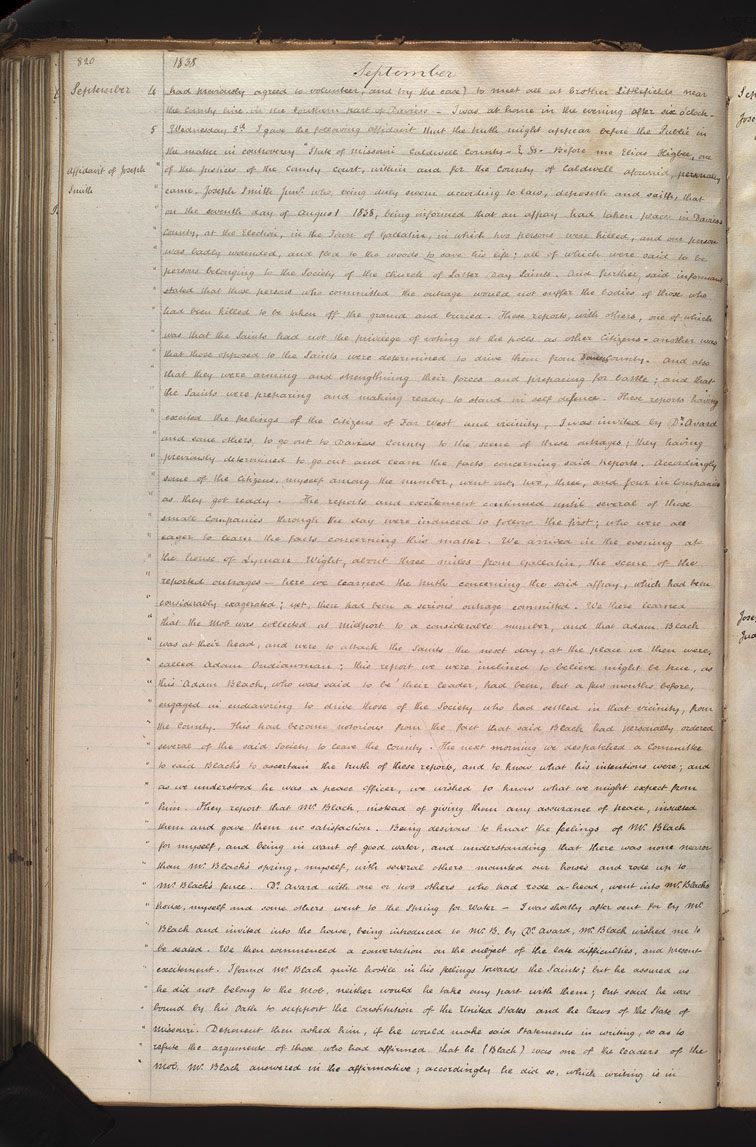 820
1838
September
September 4 had previously agreed to volunteer, and try the case) to meet all at brother Littlefields near
the County line in the Southern part of Daviess — I was at home in the evening after six o'clock —
5 Wednesday 5th I gave the following affidavit that the truth might appear before the Public in
the matter in controversy "State of Missouri Caldwell County — } SS— Before me Elias Higbee, one
Affidavit of Joseph Smith
" of the justices of the County Court, within and for the County of Caldwell aforesaid, personally
" came, Joseph Smith Junr. who, being duly sworn according to law, deposeth and saith, that
" on the seventh day of August 1838, being informed that an affray had taken place in Daviess
" County, at the Election, in the Town of Gallatin, in which two persons were killed, and one person
" was badly wounded, and fled to the woods to save his life; all of which were said to be
" persons belonging to the Society of the church of Latter Day Saints. And further, said informant
" stated that those persons who committed the outrage would not suffer the bodies of those who
" had been killed to be taken off the ground and buried. These reports, with others, one of which
" was that the Saints had not the privilege of voting at the polls as other Citizens — another was
" that those opposed to the Saints were determined to drive them from Daviess County. And also
" that they were arming and strengthning their forces and preparing for battle; and that
" the Saints were preparing and making ready to stand in self defence. These reports having
" excited the feelings of the Citizens of Far West and vicinity, I was invited by Dr. Avard
" and some others, to go out to Daviess County to the scene of these outrages; they having
" previously determined to go out and learn the facts, concerning said reports. Accordingly
" some of the Citizens, myself among the number, went out, two, three, and four in Companies
" as they got ready. The reports and excitement continued until several of those
" small Companies through the day were induced to follow the first; who were all
" eager to learn the facts concerning this matter. We arrived in the evening at
" the house of Lyman Wight, about three miles from Gallatin, the scene of the
" reported outrages — here we learned the truth concerning the said affray, which had been
" considerably exagerated; yet, there had been a serious outrage committed. We there learned
" that the Mob was collected at Millport to a considerable number, and that Adam Black
" was at their head, and were to attack the Saints the next day, at the place we then were,
" called Adam Ondiawman; this report we were inclined to believe might be true, as
" this Adam Black, who was said to be their leader, had been, but a few months before,
" engaged in endeavoring to drive those of the Society who had settled in that vicinity, from
" the County. This had become notorious from the fact that said Black had personally ordered
" several of the said Society to leave the County. The next morning we despatched a Committee
" to said Black's to ascertain the truth of these reports, and to know what his intentions were; and
" as we understood he was a peace officer, we wished to know what we might expect from
" him. They report that Mr. Black, instead of giving them any assurance of peace, insulted
" them and gave them no satisfaction. Being desirous to know the feelings of Mr. Black
" for myself, and being in want of good water, and understanding that there was none nearer
" than Mr. Black's spring, myself, with several others mounted our horses and rode up to
" Mr. Black's fence. Dr. Avard with one or two others who had rode a-head, went into Mr. Black's
" house, myself and some others went to the Spring for Water — I was shortly after sent for by Mr.
" Black and invited into the house, being introduced to Mr. B. by Dr. Avard, Mr. Black wished me to
" be seated. We then commenced a conversation on the subject of the late difficulties, and present
" excitement. I found Mr. Black quite hostile in his feelings towards the Saints; but he assured us
" he did not belong to the Mob, neither would he take any part with them; but said he was
" bound by his Oath to support the Constitution of the United States and the Laws of the State of
" Missouri. Deponent then asked him, if he would make said Statements in writing, so as to
" refute the arguments of those who had affirmed that he (Black) was one of the leaders of the
" Mob, Mr. Black answered in the affirmative; accordingly he did so, which writing is in